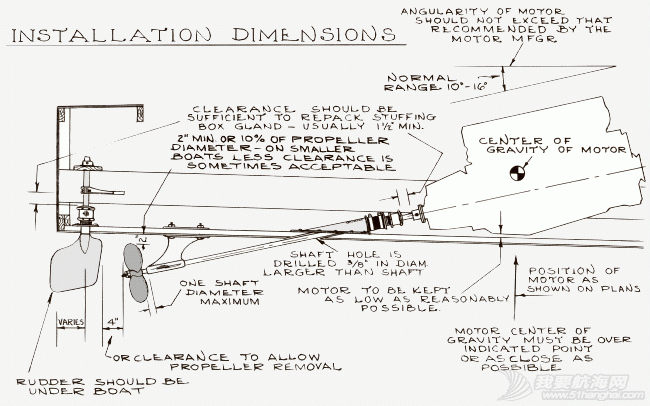 INSTALLATION DIMENSIONS
ANGULARITY OF MOTOR
SHOULD NOT EXCEED THAT
RECOMMENDED BY THE
MOTOR MFGR.
NORMAL
RANGE 10°-16°
CLEARANCE SHOULD BE
SUFFICIENT TO REPACK STUFFING
BOX GLAND - USUALLY 1½" MIN.
2" MIN. OR 10% OF PROPELLER
DIAMETER - ON SMALLER
BOATS LESS CLEARANCE IS
SOMETIMES ACCEPTABLE
CENTER OF
GRAVITY OF MOTOR
2"
SHAFT HOLE IS
DRILLED 3/8" IN DIAM.
LARGER THAN SHAFT
ONE SHAFT
DIAMETER
MAXIMUM
MOTOR TO BE KEPT
AS LOW AS REASONABLY
POSSIBLE.
POSITION OF
MOTOR AS
SHOWN ON PLANS
VARIES
4"
MOTOR CENTER OF
GRAVITY MUST BE OVER
INDICATED POINT
OR AS CLOSE AS
POSSIBLE
OR CLEARANCE TO ALLOW
PROPELLER REMOVAL
RUDDER SHOULD BE
UNDER BOAT
我要航海网
www.51hanghai.com